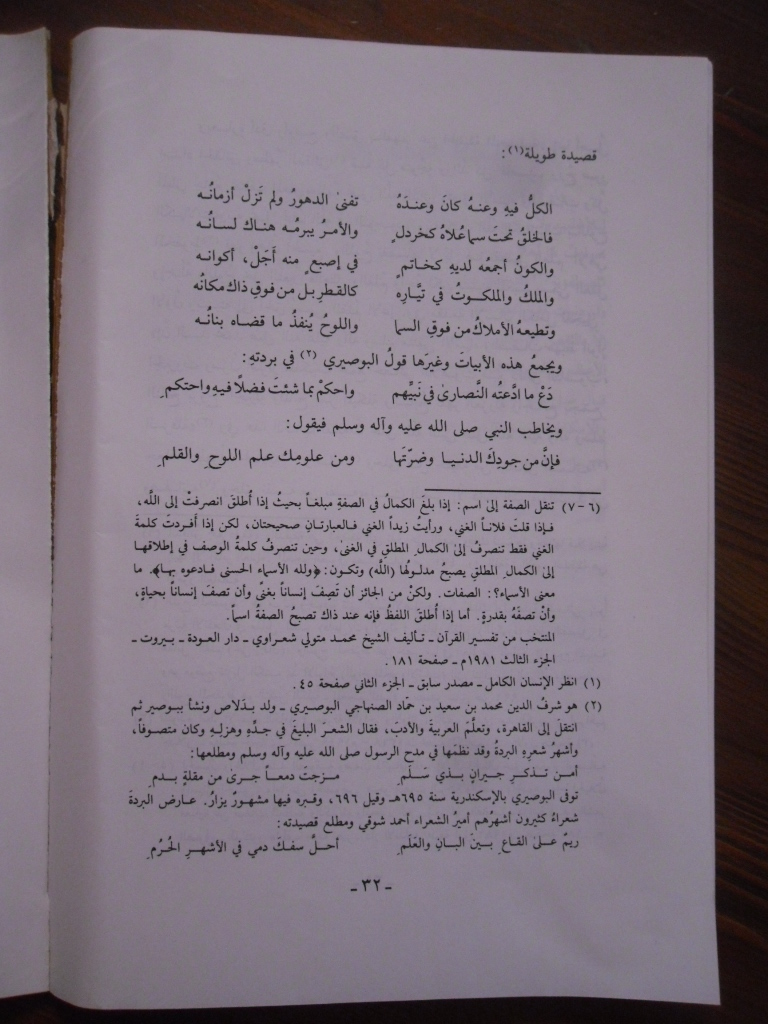 قصيدة طويلة(١) :
الكلُّ فيهِ وعنـهُ كانَ وعنـدَهُ تفنىٰ الدهورُ ولم تَزلْ أزمانُـه
فالخلقُ تحتَ سما عُلاهُ كخردلٍ والأمـرُ يبرمُـه هنـاك لسانُـه
والكونُ أجمعُه لديهِ كخـاتمٍ في إصبعٍ منه أَجَلْ، أكوانـه
والملكُ والملكـوتُ في تيَّـارِه كالقطرِ بل من فوقِ ذاك مكانُه
وتطيعهُ الأملاكُ من فوقِ السما واللوحُ يُنفذُ ما قضـاه بنانُـه
ويجمعُ هذه الأبياتَ وغيرَها قولُ البوصيري (٢) في بردتهِ :
دَعْ ما ادَّعتْه النَّصارىٰ في نَبيِّهم واحكمْ بما شئتَ فضلًا فيهِ واحتكمِ
ويخاطب النبي صلى الله عليه وآله وسلم فيقول :
فإنَّ من جودِكَ الدنيـا وضرَّتَها ومن علومِك علم اللوحِ والقلمِ
(٦ – ٧) تنقل الصفة إلىٰ اسم : إذا بلغَ الكمالُ في الصفةِ مبلغـاً بحيثُ إذا أُطلقَ انصرفتْ إلى اللّه،
فـإذا قلتَ فلانـاً الغني، ورأيتُ زيداً الغني فـالعبارتـانِ صحيحتان، لكن إذا أَفـردتَ كلمةَ
الغني فقط تنصرفُ إلى الكمالِ المطلقِ في الغنىٰ، وحين تنصرفُ كلمةُ الوصف في إطلاقها
إلىٰ الكمالِ المطلقِ يصبحُ مدلـولُها (اللّه) وتكون : ﴿وللّه الأسماء الحسنى فـادعوه بهـا﴾. ما
معنى الأسماء؟ : الصفات . ولكنْ من الجائز أن تَصِفَ إنساناً بغنًى وأن تصفَ إنساناً بحياةٍ،
وأنْ تصفَهُ بقدرةٍ. أما إذا أُطلقَ اللفظُ فإنه عند ذاك تصبحُ الصفةُ اسماً .
المنتخب من تفسير القرآن – تـأليف الشيخ محمـد متولي شعـراوي – دار العودة – بيروت –
الجزء الثالث ١٩٨١م – صفحة ١٨١ .
(١) انظر الإنسان الكامل – مصدر سابق – الجزء الثاني صفحة ٤٥ .
(٢) هو شرفُ الدين محمد بن سعيد بن حمّاد الصنهاجي البوصيري – ولد بـدَلاص ونشأ ببوصير ثم
انتقلَ إلى القاهرة، وتعلَّمَ العربيةَ والأدبَ، فقال الشعرَ البليغَ في جدِّهِ وهزلِـهِ وكان متصوفـاً،
وأشهرُ شعرِهِ البردةُ وقد نظمَها في مدح الرسول صلى الله عليه وآله وسلم ومطلعها :
أمـن تـذكـرِ جيرانٍ بـذي سَـلَمِ مـزجتَ دمعـاً جـرىٰ من مقلةٍ بـدمِ
توفى البوصيري بالإسكندرية سنة ٦٩٥هـ وقيل ٦٩٦، وقبره فيها مشهورٌ يزارُ. عـارض البردةَ
شعراءُ كثيرون أشهرُهم أميرُ الشعراء أحمد شوقي ومطلع قصيدته :
ريمٌ علىٰ القاعِ بينَ البـانِ والعَلَمِ أحلَّ سفـكَ دمي في الأشهرِ الحُرُمِ
– ٣٢ –